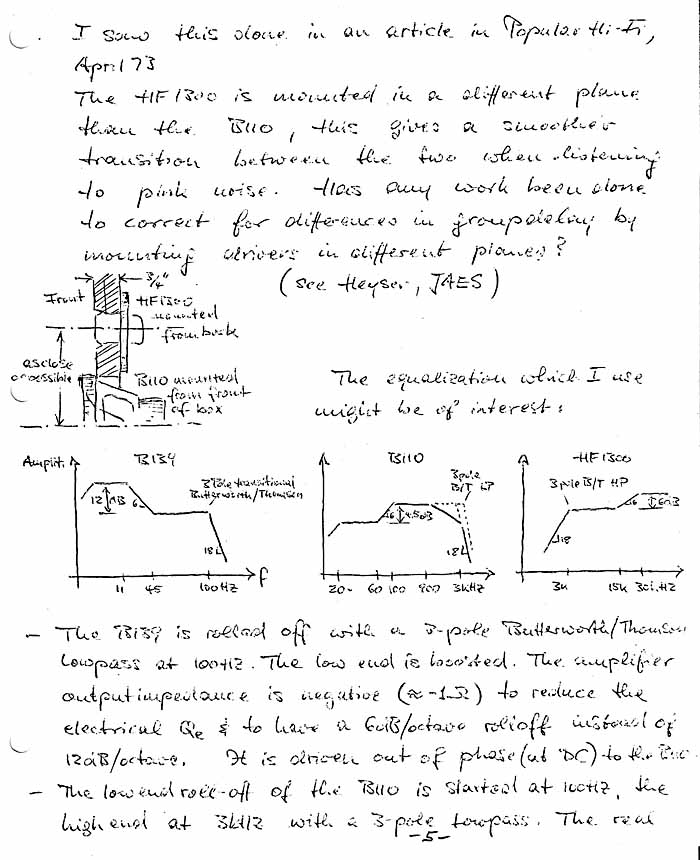 I saw this done in an article in Popular Hi-Fi,
April 73
The HF1300 is mounted in a different plane
than the B110, this gives a smoother
transition between the two when listening
to pink noise. Has any work been done
to correct for differences in groupdelay by
mounting drivers in different planes?
(see Heyser, JAES)
3/4"
Front
HF1300
mounted
from back
as close
as possible
B110 mounted
from front
of box
The equalization which I use
might be of interest:
Amplit. B139
12dB 6
3 Pole transitional
Butterworth/Thomson
18
11 45 100Hz f
B110
3pole
B/T LP
6 4.5dB
18
20 60 100 900 3kHz
A HF1300
3pole B/T HP
6 6dB
18
3k 15k 30kHz
- The B139 is rolled off with a 3-pole Butterworth/Thomson
lowpass at 100Hz. The low end is boosted. The amplifier
output impedance is negative (≈ -1Ω) to reduce the
electrical Qe & to have a 6dB/octave rolloff instead of
12dB/octave. It is driven out of phase (at DC) to the B110.
- The low end roll-off of the B110 is started at 100Hz, the
high end at 3kHz with a 3-pole lowpass. The real
-5-